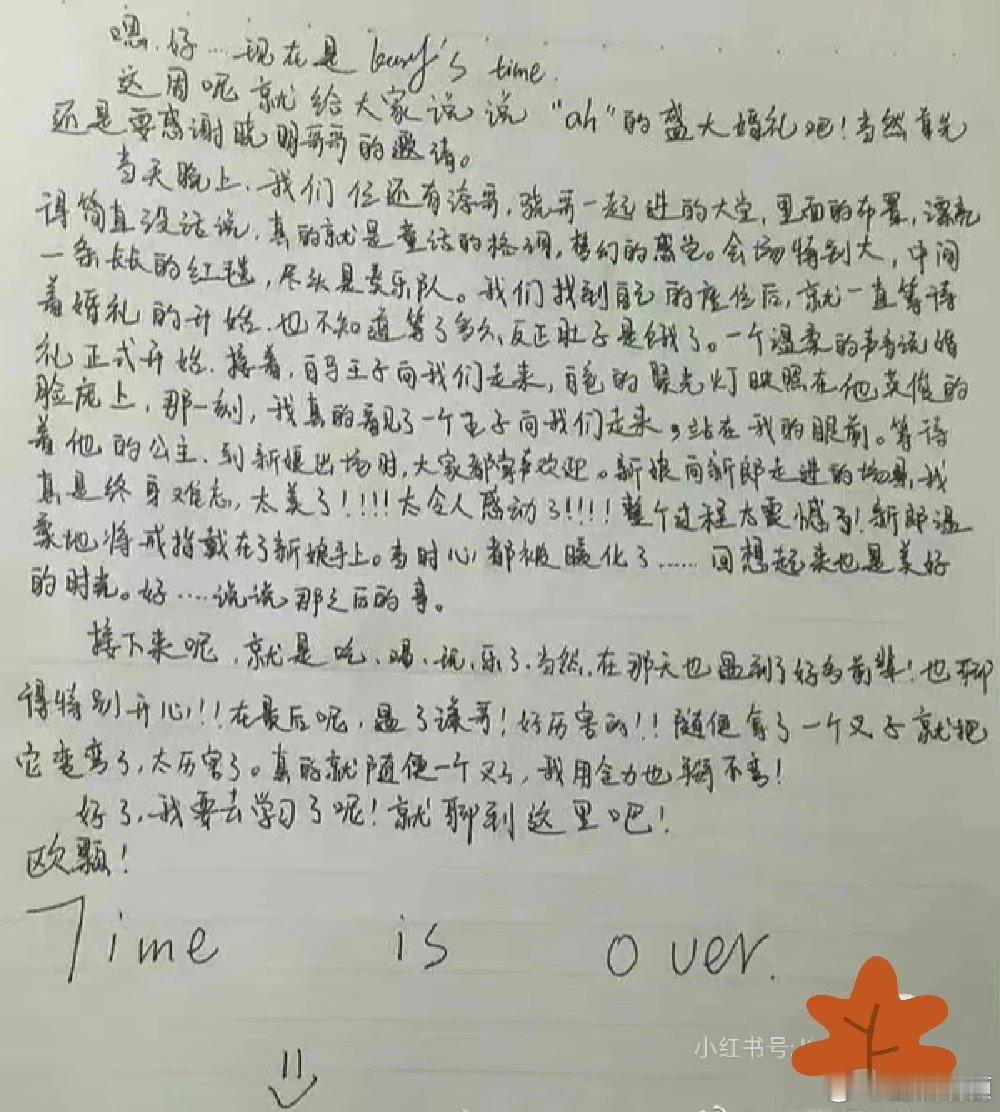 嗯，好……现在是 's time.
这周呢就给大家说说"ah"的盛大婚礼吧！当然首先
还是要感谢晓明哥哥的邀请。
当天晚上，我们仨还有涛哥，骁哥一起进的大堂，里面的布置，漂亮
得简直没话说，真的就是童话的格调，梦幻的感觉。会场特别大，中间
一条长长的红毯，尽头是奏乐队。我们找到自己的座位后，就一直等待
着婚礼的开始，也不知道等了多久，反正肚子是饿了。一个温柔的声音说婚
礼正式开始，接着，白马王子向我们走来，白色的聚光灯映照在他英俊的
脸庞上，那一刻，我真的看见了一个王子向我们走来，站在我的眼前。等待
着他的公主，到新娘出场时，大家都掌声欢迎。新娘向新郎走进的场景，我
真是终身难忘，太美了！！！！太令人感动了！！！！整个过程太震憾了！新郎温
柔地将戒指戴在了新娘手上。当时心都被暖化了……回想起来也是美好
的时光。好……说说那之后的事。
接下来呢，就是吃、喝、玩、乐了，当然，在那天也遇到了好多前辈！也聊
得特别开心！！！在最后呢，遇了涛哥！好厉害的！！随便拿了一个叉子就把
它变弯了，太厉害了。真的就随便一个叉子，我用全力也掰不弯！
好了，我要去学习了呢！就聊到这里吧！
欧颗！
Time is over.
小红书号: